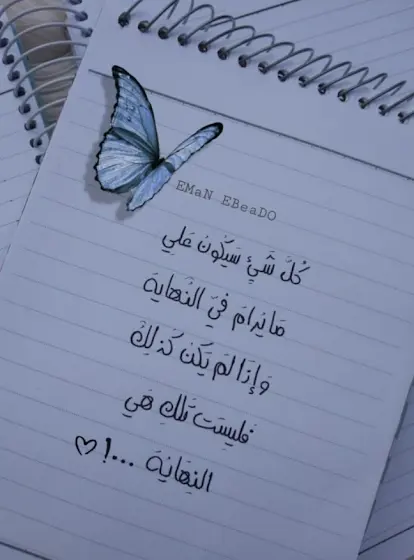 EMaN EBeaDO
كُلَّ شَيْءٍ سَيَكُونُ عَلى
مَا يُرامَ فِي النِّهايَة
وَإذَا لَمْ يَكُنْ كَذلِكَ
فَليسَت تلكِ هَي
النِهَايَة ...! ♡